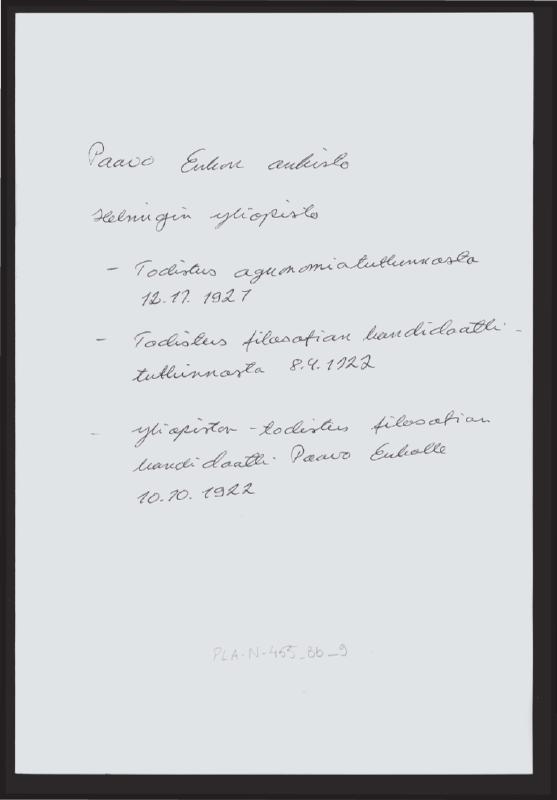 Paavo Enkon arkisto
Helsingin yliopisto
- Todistus agronomiatutkinnosta
12.11. 1921
- Todistus filosofian kandidaatti-
tutkinnosta 8.4.1922
- yliopiston -todistus filosofian
kandidaatti Paavo Enkolle
10.10. 1922
PLA-N-455_Bb_9